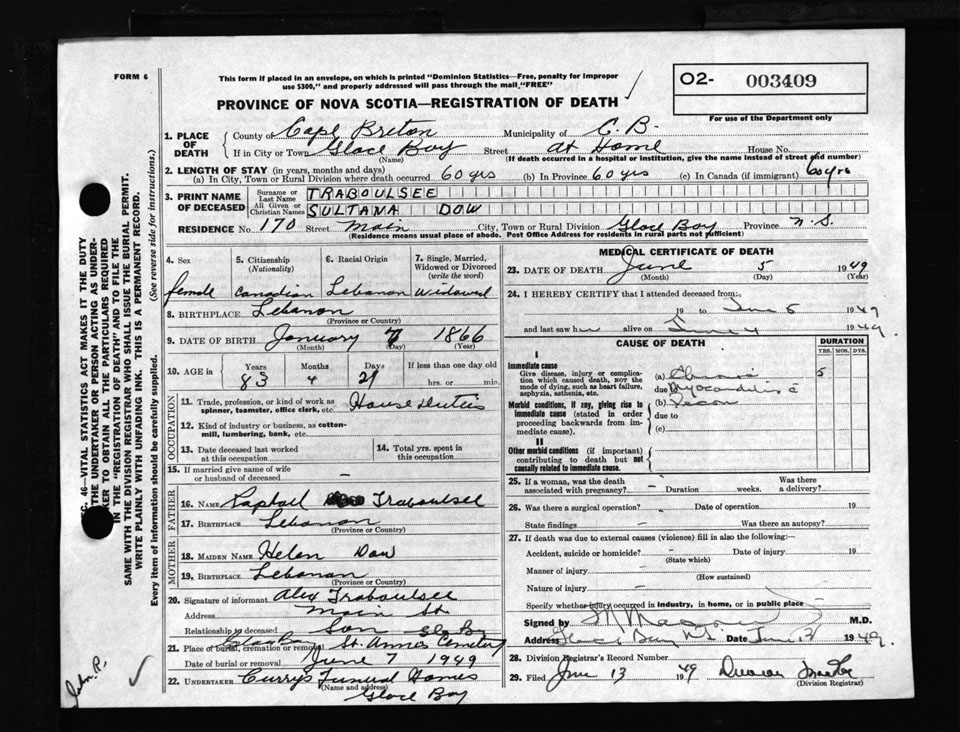 FORM 6
This form if placed in an envelope, on which is printed "Dominion Statistics—Free, penalty for improper
use $300," and properly addressed will pass through the mail "FREE"
O2- 003409
For use of the Department only
PROVINCE OF NOVA SCOTIA—REGISTRATION OF DEATH
1. PLACE OF DEATH
County of Cape Breton Municipality of C. B.
If in City or Town Glace Bay Street at Home House No.
(Name) (If death occurred in a hospital or institution, give the name instead of street and number)
2. LENGTH OF STAY (in years, months and days)
(a) In City, Town or Rural Division where death occurred 60 yrs (b) In Province 60 yrs (c) In Canada (if immigrant) 60 yrs
3. PRINT NAME OF DECEASED
Surname or Last Name TRABOULSEE
All Given or Christian Names SULTANA DOW
RESIDENCE No. 170 Street Main City, Town or Rural Division Glace Bay Province N. S.
(Residence means usual place of abode. Post Office Address for residents in rural parts not sufficient)
4. Sex
female
5. Citizenship
(Nationality)
Canadian
6. Racial Origin
Lebanon
7. Single, Married,
Widowed or Divorced
(write the word)
Widowed
8. BIRTHPLACE Lebanon
(Province or Country)
9. DATE OF BIRTH January 7 1866
(Month) (Day) (Year)
10. AGE in
Years Months Days If less than one day old
83 4 29 hrs. or min.
OCCUPATION
11. Trade, profession, or kind of work as
spinner, teamster, office clerk, etc. House Duties
12. Kind of industry or business, as cotton-
mill, lumbering, bank, etc.
13. Date deceased last worked
at this occupation
14. Total yrs. spent in
this occupation
15. If married give name of wife
or husband of deceased —
FATHER
16. NAME Raphall Traboulsee
17. BIRTHPLACE Lebanon
(Province or Country)
MOTHER
18. MAIDEN NAME Helen Dow
19. BIRTHPLACE Lebanon
(Province or Country)
20. Signature of informant Alex Traboulsee
Address Main St
Relationship to deceased Son Glace Bay
21. Place of burial, cremation or removal Glace Bay St. Annes Cemetery
Date of burial or removal June 7 1949
22. UNDERTAKER Curry's Funeral Homes
(Name and address)
Glace Bay
MEDICAL CERTIFICATE OF DEATH
23. DATE OF DEATH June 5 1949
(Month) (Day) (Year)
24. I HEREBY CERTIFY that I attended deceased from:
19 to June 5 1949
and last saw her alive on June 4 1949.
CAUSE OF DEATH
DURATION
YRS. MOS. DYS.
I
Immediate cause
Give disease, injury or complica-
tion which caused death, NOT the
mode of dying, such as heart failure,
asphyxia, asthenia, etc.
(a) Chronic 5
due Myocarditis c
Morbid conditions, if any, giving rise to
immediate cause (stated in order
proceeding backwards from im-
mediate cause).
(b)
due to
(c)
II
Other morbid conditions (if important)
contributing to death but not
causally related to immediate cause.
25. If a woman, was the death
associated with pregnancy? — Duration weeks. Was there
a delivery?
26. Was there a surgical operation? Date of operation 19
State findings — Was there an autopsy?
27. If death was due to external causes (violence) fill in also the following:—
Accident, suicide or homicide? — Date of injury 19
(State which)
Manner of injury
(How sustained)
Nature of injury —
Specify whether injury occurred in industry, in home, or in public place
Signed by M.D.
Address Date June 13 1949.
28. Division Registrar's Record Number
29. Filed June 13 1949
(Division Registrar)
SEC. 46—VITAL STATISTICS ACT MAKES IT THE DUTY
OF THE UNDERTAKER OR PERSON ACTING AS UNDER-
TAKER TO OBTAIN ALL THE PARTICULARS REQUIRED
IN THE "REGISTRATION OF DEATH" AND TO FILE THE
SAME WITH THE DIVISION REGISTRAR WHO SHALL ISSUE THE BURIAL PERMIT.
WRITE PLAINLY WITH UNFADING INK. THIS IS A PERMANENT RECORD.
Every item of information should be carefully supplied. (See reverse side for instructions.)
John. R.